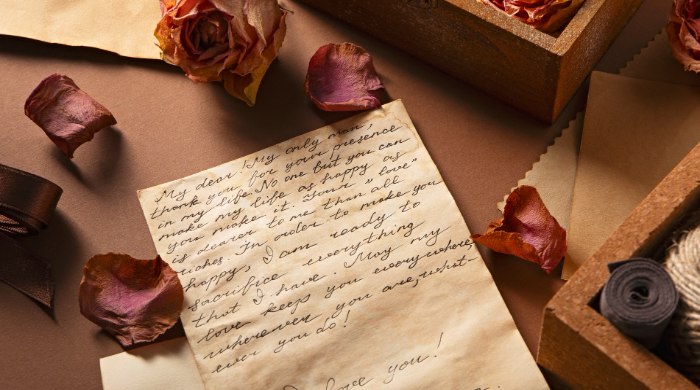 My dear! My only man,
thank you for your presence
in my life. No one but you can
make my life as happy as
you make it. Your "love"
is dearer to me than all
riches. In order to make you
happy, I am ready to
sacrifice everything
that I have. May my
love keeps you everywhere,
wherever you are, what-
ever you do!
I love you!